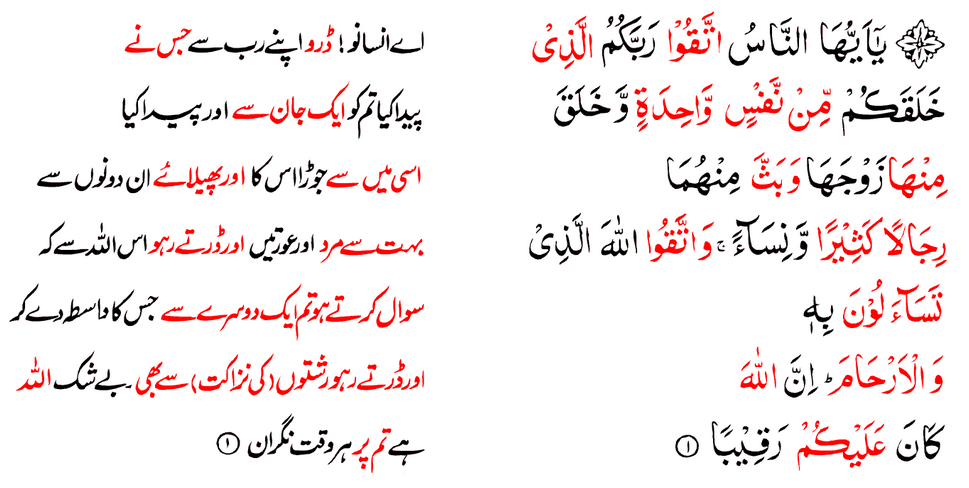 يٰۤاَيُّهَا النَّاسُ اتَّقُوْا رَبَّكُمُ الَّذِىْ
خَلَقَكُمْ مِّنْ نَّفْسٍ وَّاحِدَةٍ وَّخَلَقَ
مِنْهَا زَوْجَهَا وَبَثَّ مِنْهُمَا
رِجَالًا كَثِيْرًا وَّنِسَآءً ۚ وَاتَّقُوا اللهَ الَّذِىْ
تَسَآءَلُوْنَ بِهٖ
وَالْاَرْحَامَ ؕ اِنَّ اللهَ
كَانَ عَلَيْكُمْ رَقِيْبًا ①
اے انسانو! ڈرو اپنے رب سے جس نے
پیدا کیا تم کو ایک جان سے اور پیدا کیا
اسی میں سے جوڑا اس کا اور پھیلائے ان دونوں سے
بہت سے مرد اور عورتیں اور ڈرتے رہو اس اللہ سے کہ
سوال کرتے ہو تم ایک دوسرے سے جس کا واسطہ دے کر
اور ڈرتے رہو رشتوں (کی نزاکت) سے بھی۔ بے شک اللہ
ہے تم پر ہر وقت نگران ①